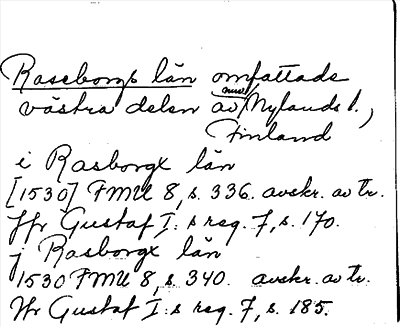 Raseborgs län omfattade
västra delen av nuv. Nylands l.,
Finland
i Rasborgx län
[1530] FMU 8, s. 336. avskr. av tr.
Jfr Gustaf I:s reg. 7, s. 170.
j Rasborgx län
1530 FMU 8, s. 340. avskr. av tr.
Jfr Gustaf I:s reg. 7, s. 185.